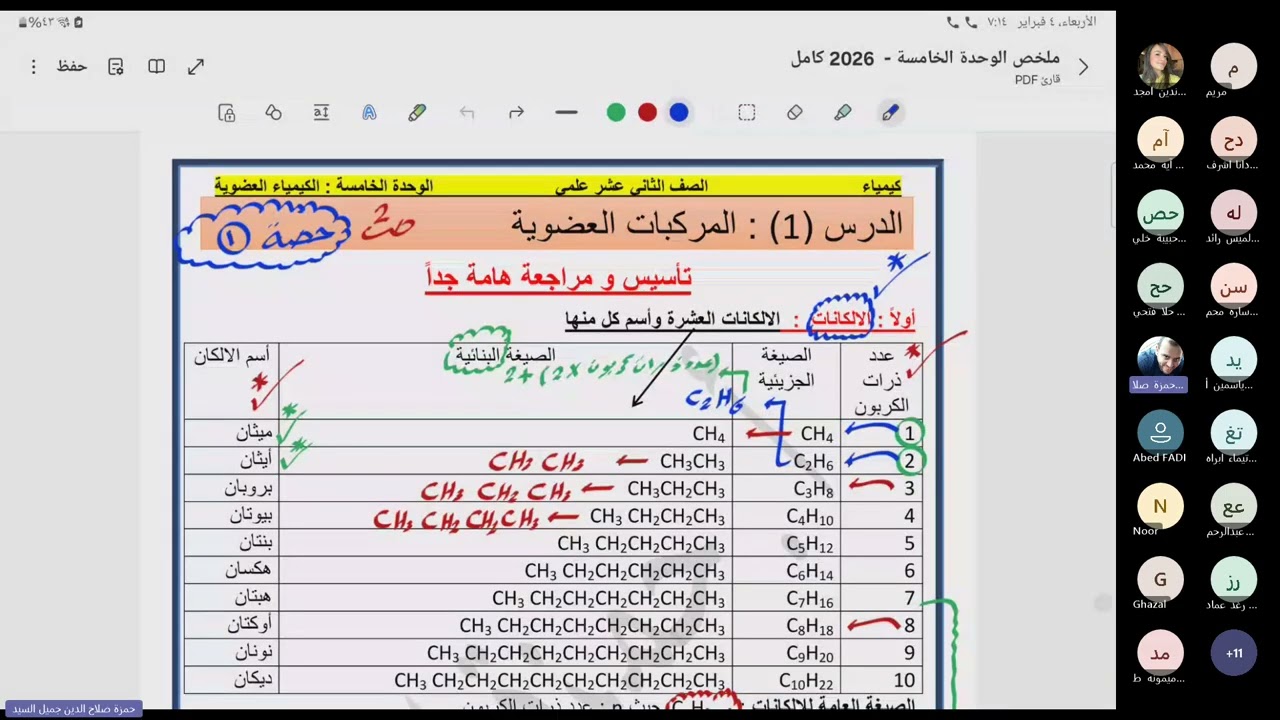 الأربعاء، ٤ فبراير ٧:١٤
٤٣%
ملخص الوحدة الخامسة - 2026 كامل
قارئ PDF
حفظ
كيمياء الصف الثاني عشر علمي الوحدة الخامسة : الكيمياء العضوية
الدرس (1) : المركبات العضوية
صـ2
حصة ①
تأسيس و مراجعة هامة جداً
أولاً : الالكانات : الالكانات العشرة وأسم كل منها
عدد ذرات الكربون الصيغة الجزيئية الصيغة البنائية أسم الالكان
(عدد ذرات كربون X2) +2
C2H6
1 CH4 CH4 ميثان
2 C2H6 CH3CH3 CH3 CH3 أيثان
3 C3H8 CH3CH2CH3 CH3 CH2 CH3 بروبان
4 C4H10 CH3 CH2CH2CH3 CH3 CH2 CH2 CH3 بيوتان
5 C5H12 CH3 CH2CH2CH2CH3 بنتان
6 C6H14 CH3 CH2CH2CH2CH2CH3 هكسان
7 C7H16 CH3 CH2CH2CH2CH2CH2CH3 هبتان
8 C8H18 CH3 CH2CH2CH2CH2CH2CH2CH3 أوكتان
9 C9H20 CH3 CH2CH2CH2CH2CH2CH2CH2CH3 نونان
10 C10H22 CH3 CH2CH2CH2CH2CH2CH2CH2CH2CH3 ديكان
الصيغة العامة للالكانات : حيث n : عدد ذرات الكربون
م
مريم
ندين امجد...
دح
دانا اشرف...
آم
آية محمد...
له
لميس رائد...
حص
حبيبة خلي...
سن
سارة محم...
حج
حلا فتحي...
يد
ياسمين أ...
حمزة صلا...
تغ
تيماء ابراه...
Abed FADI
عع
عبدالرحم...
N
Noor
رز
رغد عماد...
G
Ghazal
+11
مد
ميمونه ط...
حمزة صلاح الدين جميل السيد